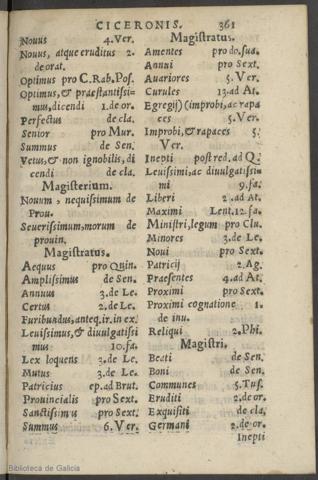 CICERONIS. 361
Nouus 4. Ver.
Nouus, atque eruditus 2.
de orat.
Optimus pro C. Rab. Pos.
Optimus, & præstantissi-
mus, dicendi 1. de or.
Perfectus de cla.
Senior pro Mur.
Summus de Sen.
Vetus, & non ignobilis, di
cendi de cla.
Magisterium.
Nouum, nequissimum de
Prou.
Seuerissimum, morum de
prouin.
Magistratus.
Aequus pro Quin.
Amplissimus de Sen.
Annuus 3. de Le.
Certus 2. de Le.
Furibundus, anteq. ir. in ex.
Leuissimus, & diuulgatissi
mus 10. fa.
Lex loquens 3. de Le.
Mutus 3. de Le.
Patricius ep. ad Brut.
Prouincialis pro Sext.
Sanctissimus pro Sext.
Summus 6. Ver.
Magistratus.
Amentes pro do. sua.
Annui pro Sext.
Auariores 5. Ver.
Curules 13. ad At.
Egregij (improbi, ac rapa
ces 5. Ver.
Improbi, & rapaces 5.
Ver.
Inepti post red. ad Q.
Leuissimi, ac diuulgatissi-
mi 9. fa.
Liberi 2. ad At.
Maximi Lent. 12. fa.
Ministri, legum pro Clu.
Minores 3. de Le.
Noui pro Sext.
Patricij 2. Ag.
Præsentes 4. ad At.
Proximi pro Sext.
Proximi cognatione 1.
de inu.
Reliqui 2. Phi.
Magistri.
Beati de Sen.
Boni de Sen.
Communes 5. Tus.
Eruditi 2. de or.
Exquisiti de cla.
Germani 2. de or.
Inepti
Biblioteca de Galicia